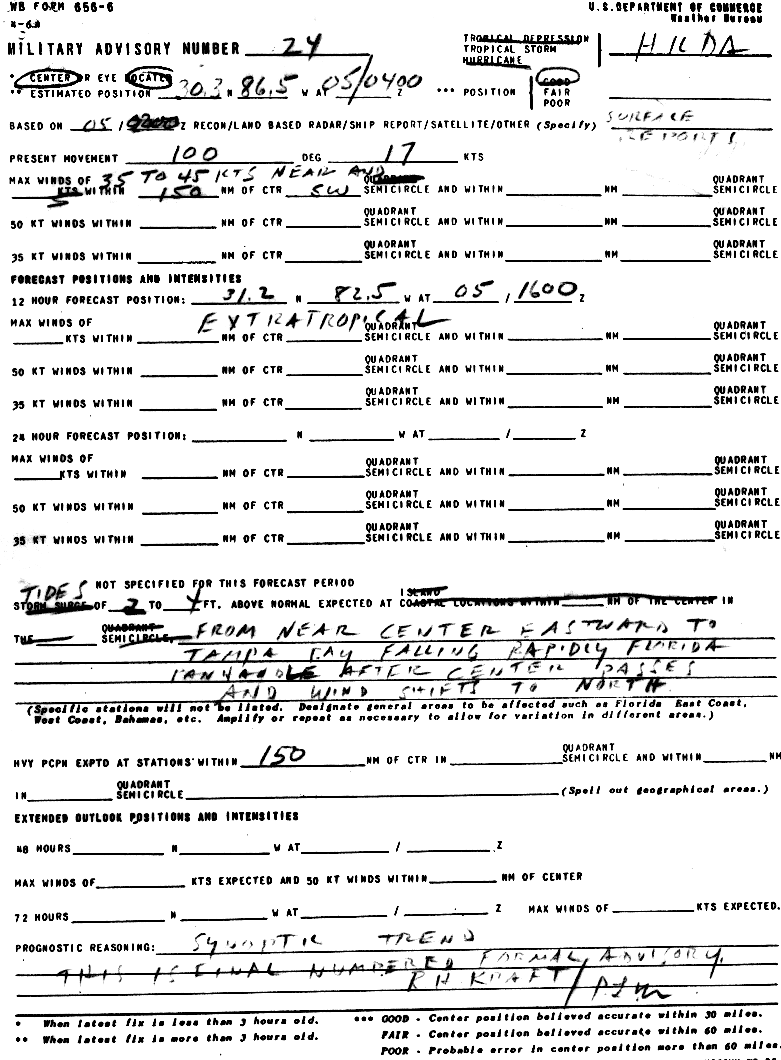 WB FORM 656-6 U.S. DEPARTMENT OF COMMERCE
Weather Bureau
MILITARY ADVISORY NUMBER 24 TROPICAL DEPRESSION
TROPICAL STORM HILDA
HURRICANE
* CENTER OR EYE LOCATED GOOD
** ESTIMATED POSITION 30.3 N 86.5 W AT 05/0400 Z *** POSITION FAIR
POOR
BASED ON 05 / Z RECON/LAND BASED RADAR/SHIP REPORT/SATELLITE/OTHER (Specify) SURFACE
REPORTS
PRESENT MOVEMENT 100 DEG 17 KTS
MAX WINDS OF 35 TO 45 KTS NEAR AND QUADRANT QUADRANT
S KTS WITHIN 150 NM OF CTR SW SEMICIRCLE AND WITHIN NM SEMICIRCLE
QUADRANT QUADRANT
50 KT WINDS WITHIN NM OF CTR SEMICIRCLE AND WITHIN NM SEMICIRCLE
QUADRANT QUADRANT
35 KT WINDS WITHIN NM OF CTR SEMICIRCLE AND WITHIN NM SEMICIRCLE
FORECAST POSITIONS AND INTENSITIES
12 HOUR FORECAST POSITION: 31.2 N 82.5 W AT 05 / 1600 Z
MAX WINDS OF EXTRATROPICAL QUADRANT QUADRANT
KTS WITHIN NM OF CTR SEMICIRCLE AND WITHIN NM SEMICIRCLE
QUADRANT QUADRANT
50 KT WINDS WITHIN NM OF CTR SEMICIRCLE AND WITHIN NM SEMICIRCLE
QUADRANT QUADRANT
35 KT WINDS WITHIN NM OF CTR SEMICIRCLE AND WITHIN NM SEMICIRCLE
24 HOUR FORECAST POSITION: N W AT / Z
MAX WINDS OF QUADRANT QUADRANT
KTS WITHIN NM OF CTR SEMICIRCLE AND WITHIN NM SEMICIRCLE
QUADRANT QUADRANT
50 KT WINDS WITHIN NM OF CTR SEMICIRCLE AND WITHIN NM SEMICIRCLE
QUADRANT QUADRANT
35 KT WINDS WITHIN NM OF CTR SEMICIRCLE AND WITHIN NM SEMICIRCLE
TIDES NOT SPECIFIED FOR THIS FORECAST PERIOD ISLAND
STORM SURGE OF 2 TO 4 FT. ABOVE NORMAL EXPECTED AT COASTAL LOCATIONS WITHIN NM OF THE CENTER IN
THE QUADRANT
SEMICIRCLE, FROM NEAR CENTER EASTWARD TO
TAMPA BAY FALLING RAPIDLY FLORIDA
PANHANDLE AFTER CENTER PASSES
AND WIND SHIFTS TO NORTH
(Specific stations will not be listed. Designate general areas to be affected such as Florida East Coast,
West Coast, Bahamas, etc. Amplify or repeat as necessary to allow for variation in different areas.)
HVY PCPN EXPTD AT STATIONS WITHIN 150 NM OF CTR IN QUADRANT
SEMICIRCLE AND WITHIN NM
IN QUADRANT
SEMICIRCLE (Spell out geographical areas.)
EXTENDED OUTLOOK POSITIONS AND INTENSITIES
48 HOURS N W AT / Z
MAX WINDS OF KTS EXPECTED AND 50 KT WINDS WITHIN NM OF CENTER
72 HOURS N W AT / Z MAX WINDS OF KTS EXPECTED.
PROGNOSTIC REASONING: SYNOPTIC TREND
THIS IS FINAL NUMBERED FORMAL ADVISORY.
RH KRAFT/
* When latest fix is less than 3 hours old. *** GOOD - Center position believed accurate within 30 miles.
** When latest fix is more than 3 hours old. FAIR - Center position believed accurate within 60 miles.
POOR - Probable error in center position more than 60 miles